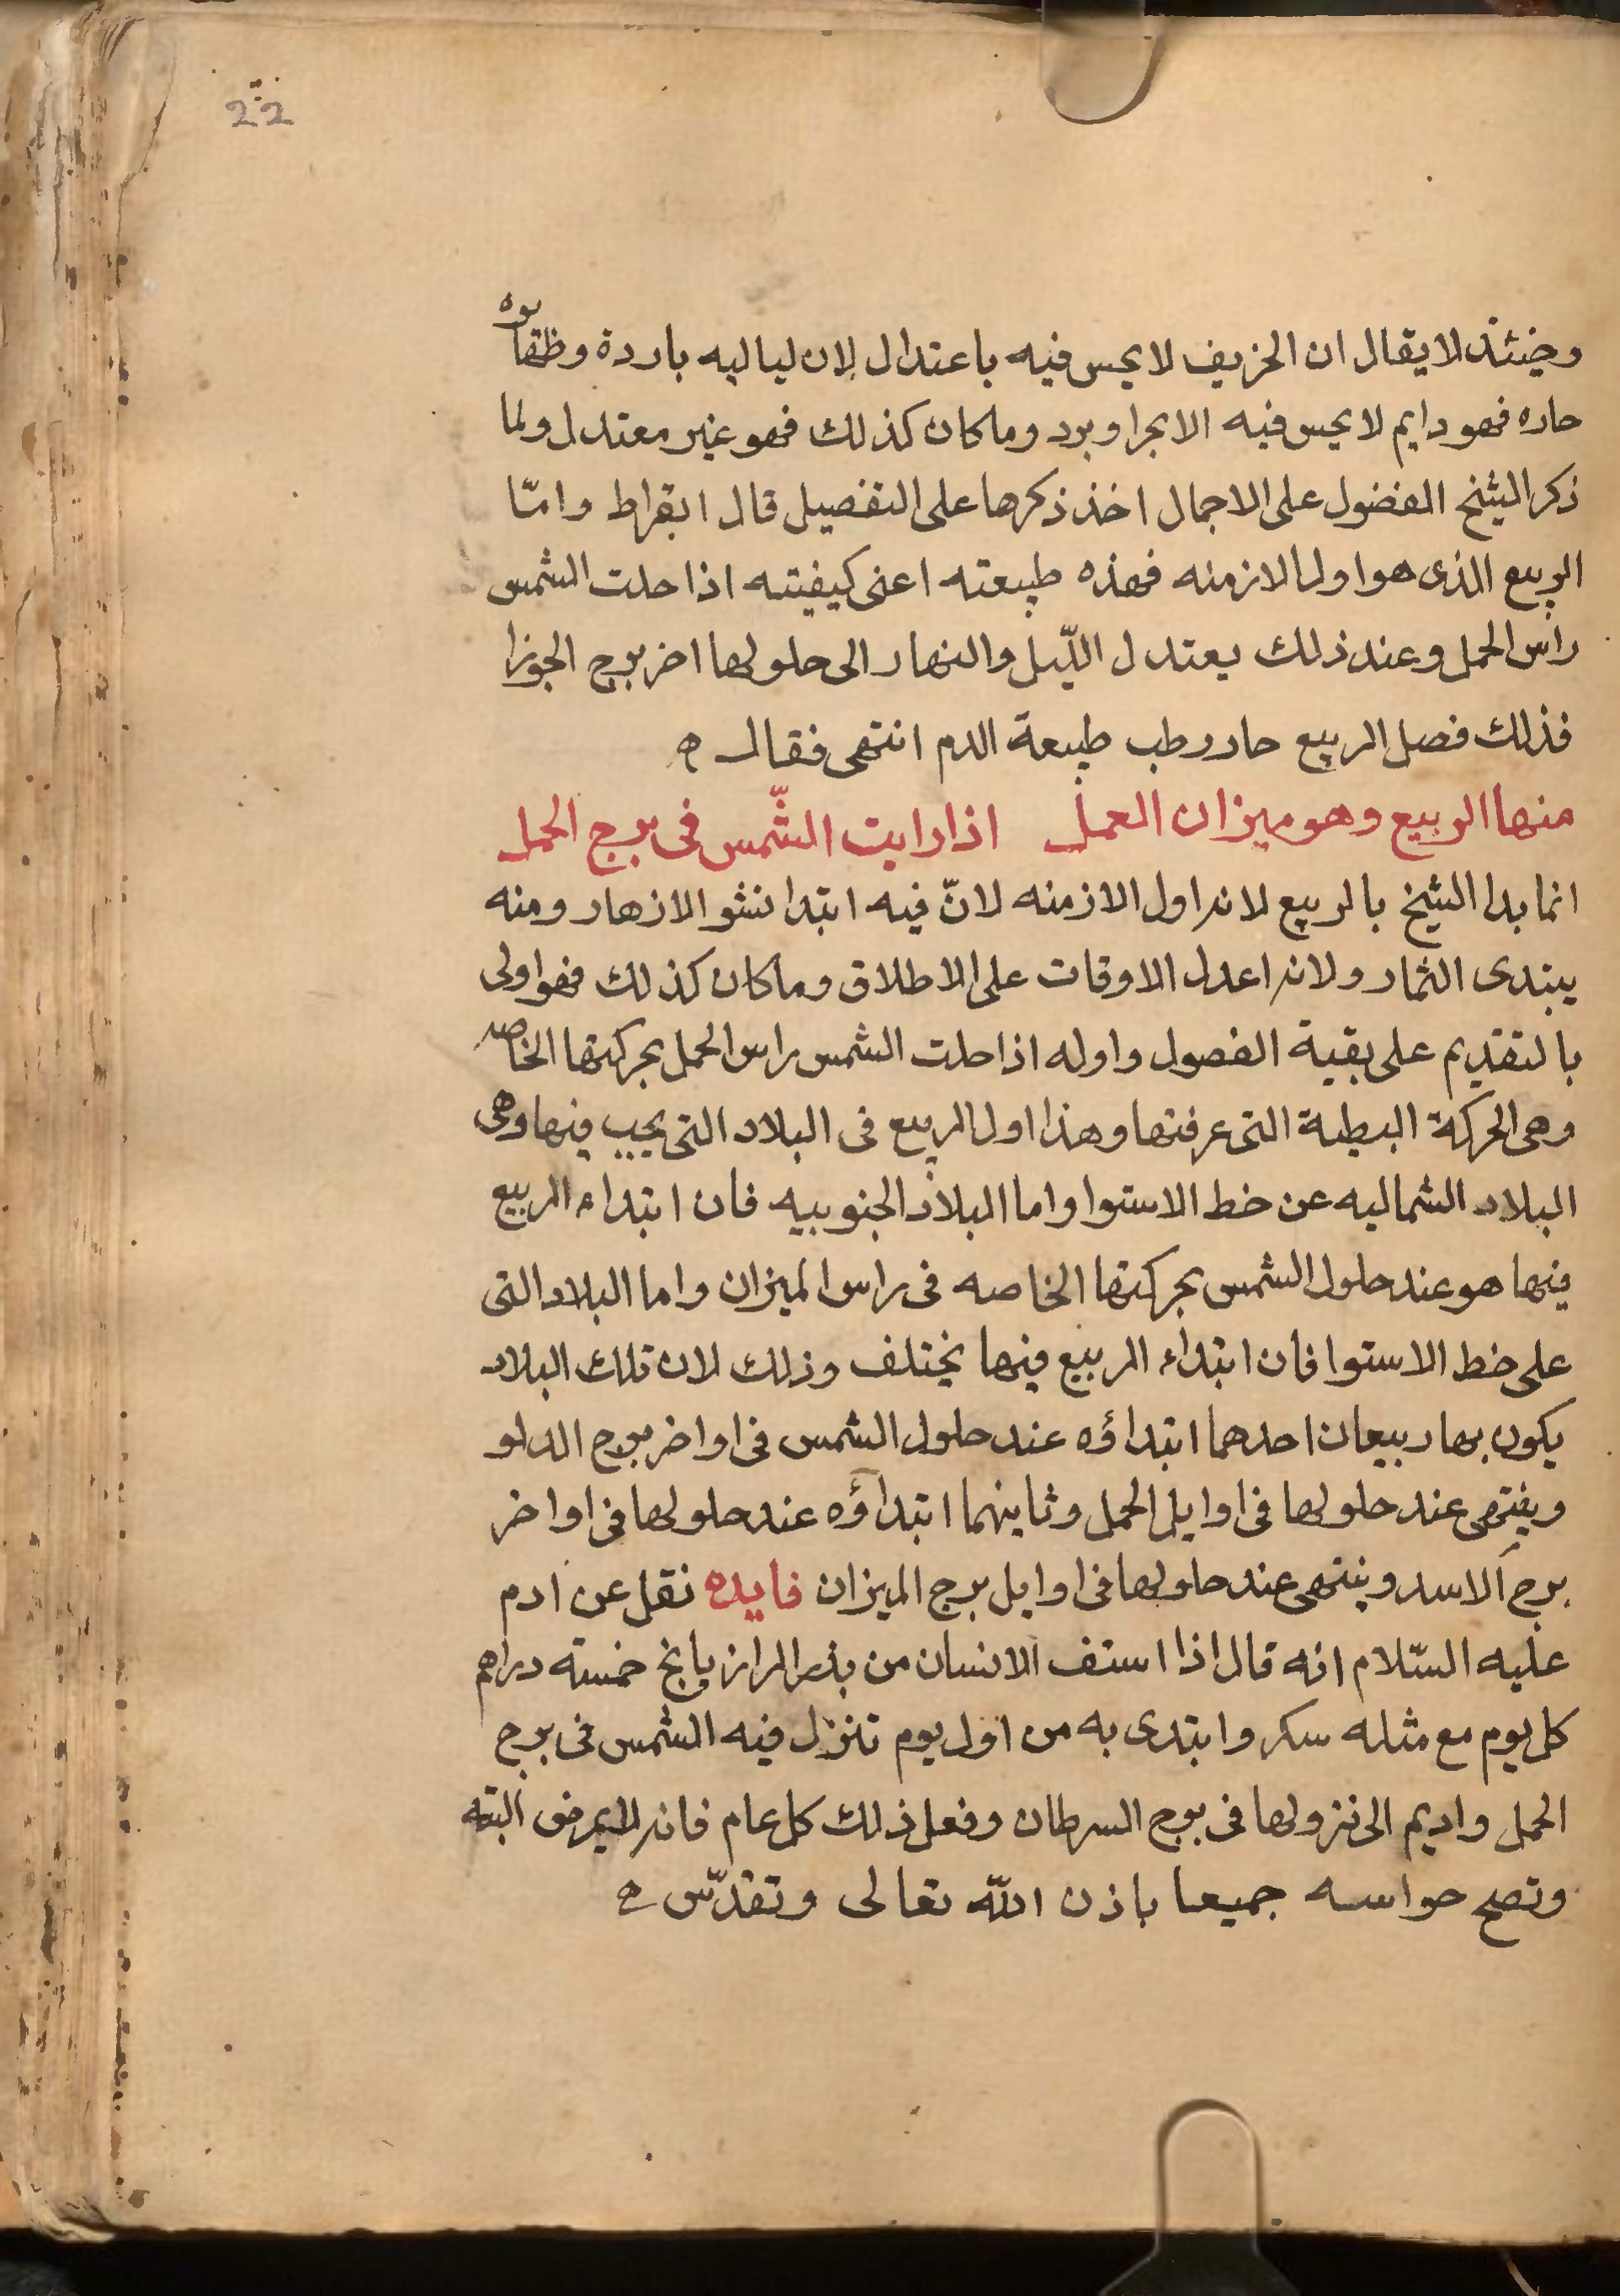 22
وحينئذ لا يقال ان الخريف لا يحس فيه باعتدال لان لياليه باردة وظهايره
حاره فهو دايم لا يحس فيه الا بحر او برد وما كان كذلك فهو غير معتدل ولما
ذكر الشيخ الفضول على الاجمال اخذ ذكرها على التفصيل قال ابقراط وامّا
الربيع الذى هو اول الازمنه فهذه طبيعته اعنى كيفيته اذا حلت الشمس
راس الحمل وعند ذلك يعتدل اللّيل والنهار الى حلولها اخر برج الجوزا
فذلك فصل الربيع حار رطب طبيعة الدم انتهى فقال
منها الربيع وهو ميزان العمل اذا رايت الشّمس فى برج الحمل
انما بدا الشيخ بالربيع لانه اول الازمنه لانّ فيه ابتدا نشو الازهار ومنه
يبتدى الثمار ولانه اعدل الاوقات على الاطلاق وما كان كذلك فهو اولى
بالتقديم على بقية الفصول واوله اذا حلت الشمس راس الحمل بحركتها الخاصه
وهى الحركة البطية التى عرفتها وهذا اول الربيع فى البلاد التى يجب فيها وهى
البلاد الشماليه عن خط الاستوا واما البلاد الجنوبيه فان ابتداء الربيع
فيها هو عند حلول الشمس بحركتها الخاصه فى راس الميزان واما البلاد التى
على خط الاستوا فان ابتداء الربيع فيها يختلف وذلك لان تلك البلاد
يكون بها ربيعان احدهما ابتداؤه عند حلول الشمس فى اواخر برج الدلو
وينتهى عند حلولها فى اوايل الحمل وثانيهما ابتداؤه عند حلولها فى اواخر
برج الاسد وينتهى عند حلولها فى اوايل برج الميزان فايده نقل عن ادم
عليه السّلام انه قال اذا استف الانسان من بذر الرازيانج خمسته دراهم
كل يوم مع مثله سكر وابتدى به من اول يوم تنزل فيه الشمس فى برج
الحمل واديم الى نزولها فى برج السرطان وفعل ذلك كل عام فانه لا يمرض البته
وتصح حواسه جميعا باذن اللّه تعالى وتقدّس